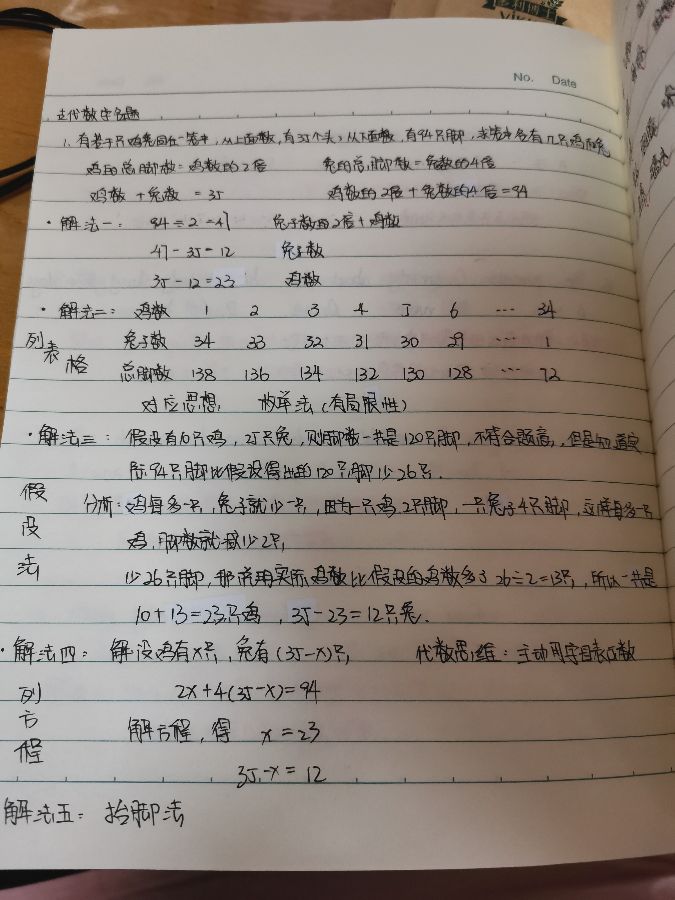 No. Date
古代数学名题
1. 有若干只鸡兔同在一笼中，从上面数，有35个头；从下面数，有94只脚，求笼中各有几只鸡和兔
鸡的总脚数=鸡数的2倍 兔的总脚数=兔数的4倍
鸡数+兔数=35 鸡数的2倍+兔数的4倍=94
·解法一： 94÷2=47 兔子数的2倍+鸡数
47-35=12 兔子数
35-12=23 鸡数
·解法二： 鸡数 1 2 3 4 5 6 … 34
列表格 兔子数 34 33 32 31 30 29 … 1
总脚数 138 136 134 132 130 128 … 72
对应思想， 枚举法（有局限性）
·解法三： 假设有10只鸡，25只兔，则脚数一共是120只脚，不符合题意，但是知道实
际94只脚比假设得出的120只脚少26只.
假设法 分析：鸡每多一只，兔子就少一只，因为一只鸡2只脚，一只兔子4只脚，这样每多一只
鸡，脚数就减少2只，
少26只脚，那说明实际鸡数比假设的鸡数多了26÷2=13只，所以一共是
10+13=23只鸡，35-23=12只兔.
·解法四： 解设鸡有x只，兔有(35-x)只， 代数思维：主动用字母表示数
列方程 2x+4(35-x)=94
解方程，得 x=23
35-x=12
解法五： 抬脚法